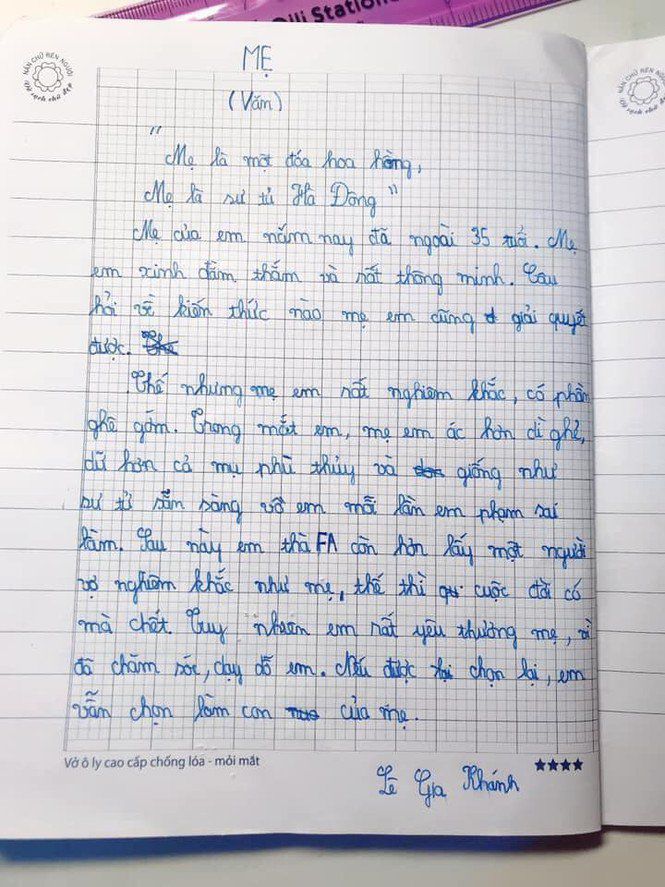 Oili Station
NẮN CHỮ RÈN NGƯỜI
Vở sạch chữ đẹp
NẮN CHỮ RÈN NGƯỜI
MẸ
(Văn)
"
Mẹ là một đóa hoa hồng,
Mẹ là sư tử Hà Đông"
Mẹ của em năm nay đã ngoài 35 tuổi. Mẹ
em xinh đằm thắm và rất thông minh. Câu
hỏi về kiến thức nào mẹ em cũng giải quyết
được.
Thế nhưng mẹ em rất nghiêm khắc, có phần
ghê gớm. Trong mắt em, mẹ em ác hơn dì ghẻ,
dữ hơn cả mụ phù thủy và giống như
sư tử sẵn sàng vồ em mỗi lần em phạm sai
lầm. Sau này em thà FA còn hơn lấy một người
vợ nghiêm khắc như mẹ, thế thì cuộc đời có
mà chết. Tuy nhiên em rất yêu thương mẹ, vì
đã chăm sóc, dạy dỗ em. Nếu được chọn lại, em
vẫn chọn làm con của mẹ.
Vở ô ly cao cấp chống lóa - mỏi mắt
Lê Gia Khánh